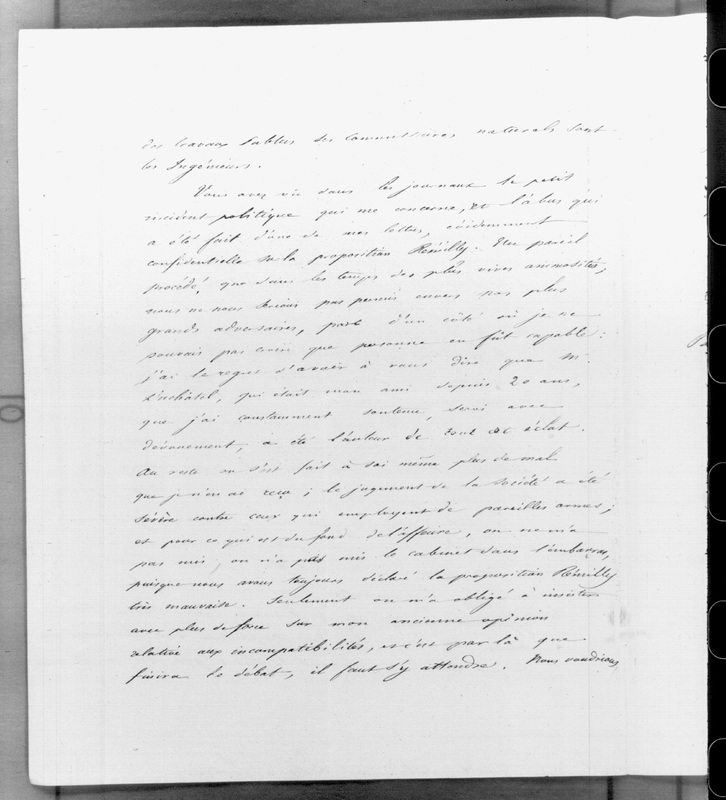 des travaux Publics les Commissaires naturels sont
les Ingénieurs.
Vous avez vu dans les journaux le petit
incident politique qui me concerne, et l'abus qui
a été fait d'une de mes lettres, évidemment
confidentielle sur la proposition Rémilly. Un pareil
procédé, que dans les temps des plus vives animosités,
nous ne nous serions pas permis envers nos plus
grands adversaires, part d'un côté où je ne
pouvais pas croire que personne en fût capable :
j'ai le regret d'avoir à vous dire que M.
qui était mon ami depuis 20 ans,
que j'ai constamment soutenu, servi avec
dévouement, a été l'auteur de tout cet éclat.
Au reste on s'est fait à soi même plus de mal
que je n'en ai reçu ; le jugement de la Société a été
sévère contre ceux qui employent de pareilles armes ;
et pour ce qui est du fond de l'affaire, on ne m'a
pas mis, on n'a pas mis le cabinet dans l'embarras,
puisque nous avons toujours déclaré la proposition Rémilly
très mauvaise. Seulement on m'a obligé à insister
avec plus de force sur mon ancienne opinion
relative aux incompatibilités, et c'est par là que
finira le débat, il faut s'y attendre. Nous voudrions